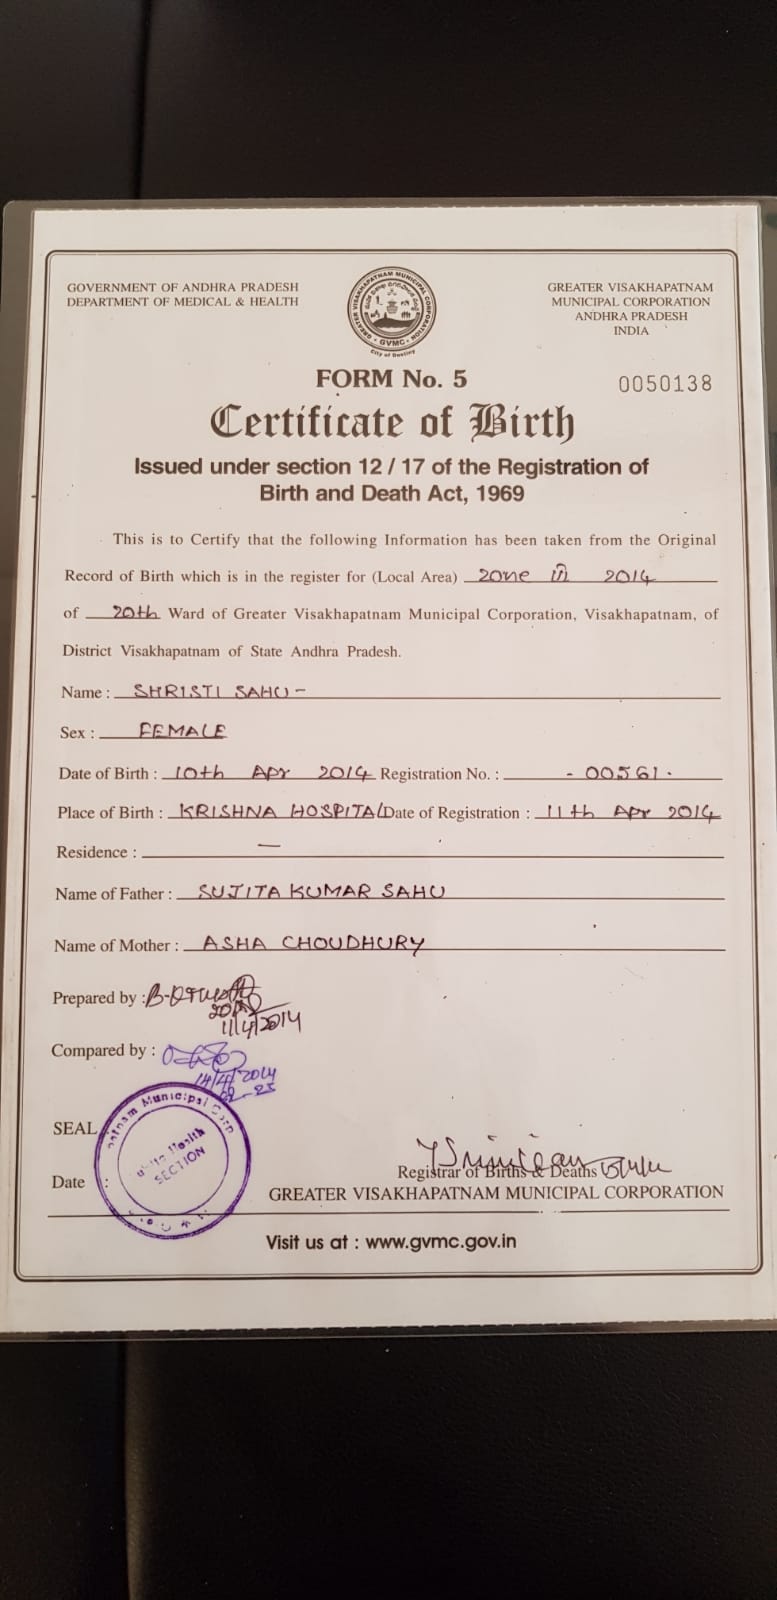 GOVERNMENT OF ANDHRA PRADESH
DEPARTMENT OF MEDICAL & HEALTH
GREATER VISAKHAPATNAM MUNICIPAL CORPORATION
GVMC
City of Destiny
GREATER VISAKHAPATNAM
MUNICIPAL CORPORATION
ANDHRA PRADESH
INDIA
FORM No. 5
0050138
Certificate of Birth
Issued under section 12 / 17 of the Registration of
Birth and Death Act, 1969
This is to Certify that the following Information has been taken from the Original
Record of Birth which is in the register for (Local Area) zone in 2014
of 20th Ward of Greater Visakhapatnam Municipal Corporation, Visakhapatnam, of
District Visakhapatnam of State Andhra Pradesh.
Name : SHRISTI SAHU -
Sex : FEMALE
Date of Birth : 10th Apr 2014 Registration No. : - 00561 .
Place of Birth : KRISHNA HOSPITAL Date of Registration : 11th Apr 2014
Residence : —
Name of Father : SUJITA KUMAR SAHU
Name of Mother : ASHA CHOUDHURY
Prepared by :
11/4/2014
Compared by :
14/4/2014
SEAL
Municipal Corp
Health
SECTION
Date :
Registrar of Births & Deaths
GREATER VISAKHAPATNAM MUNICIPAL CORPORATION
Visit us at : www.gvmc.gov.in